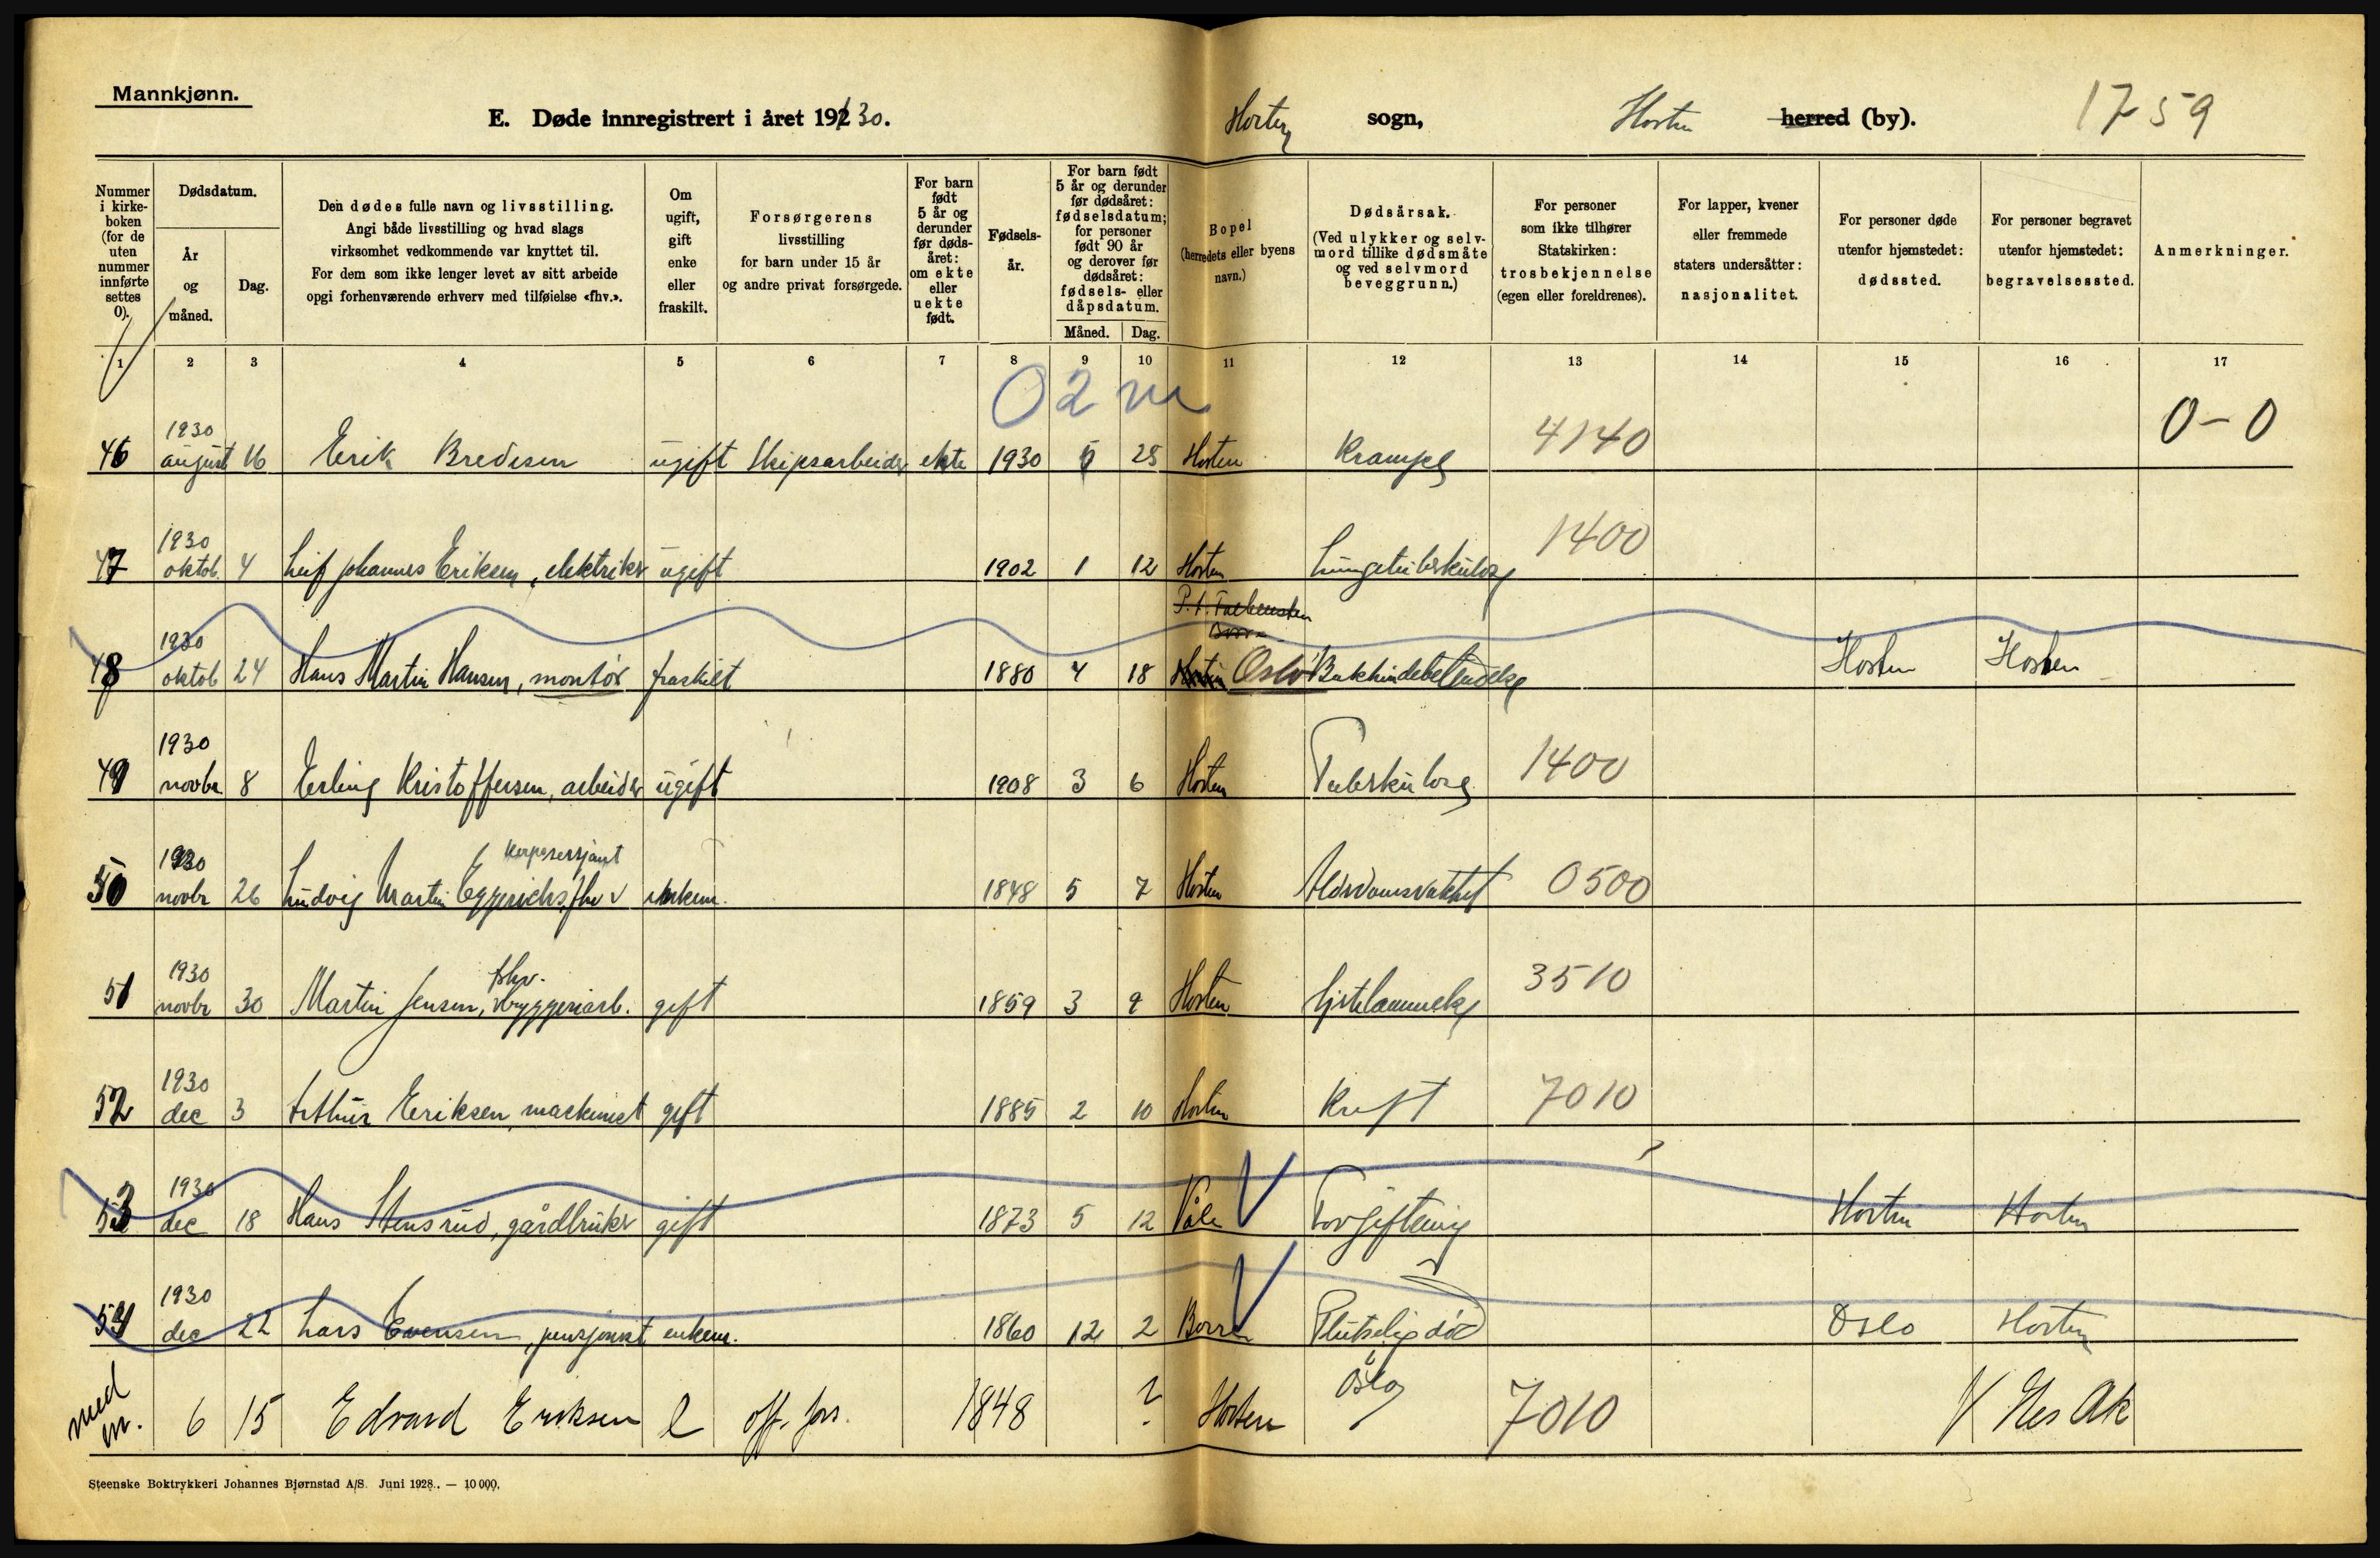 Mannkjønn.
E. Døde innregistrert i året 192 30. Horten sogn, Horten herred (by). 1759
Nummer i kirke-boken (for de uten nummer innførte settes 0).
Dødsdatum.
År og måned.
Dag.
Den dødes fulle navn og livsstilling.
Angi både livsstilling og hvad slags
virksomhet vedkommende var knyttet til.
For dem som ikke lenger levet av sitt arbeide
opgi forhenværende erhverv med tilføielse «fhv.».
Om ugift, gift enke eller fraskilt.
Forsørgerens
livsstilling
for barn under 15 år
og andre privat forsørgede.
For barn født 5 år og derunder før døds-året: om ekte eller uekte født.
Fødsels-år.
For barn født 5 år og derunder før dødsåret: fødselsdatum; for personer født 90 år og derover før dødsåret: fødsels- eller dåpsdatum.
Måned. Dag.
Bopel
(herredets eller byens navn.)
Dødsårsak.
(Ved ulykker og selv-mord tillike dødsmåte og ved selvmord beveggrunn.)
For personer som ikke tilhører Statskirken: trosbekjennelse (egen eller foreldrenes).
For lapper, kvener eller fremmede staters undersåtter: nasjonalitet.
For personer døde utenfor hjemstedet: dødssted.
For personer begravet utenfor hjemstedet: begravelsessted.
Anmerkninger.
1 2 3 4 5 6 7 8 9 10 11 12 13 14 15 16 17
02 m
0-0
46 1930 august 16 Erik Bredesen ugift Skipsarbeider ekte 1930 5 28 Horten Krampe 4140
47 1930 oktob. 4 Leif Johannes Eriksen, elektriker ugift 1902 1 12 Horten Lungetuberkulose 1400
P.t. Falkensten
Borre
48 1930 oktob 24 Hans Martin Hansen, montør fraskilt 1880 4 18 Horten Oslo Bukhindebetendelse Horten Horten
49 1930 novbr 8 Erling Kristoffersen, arbeider ugift 1908 3 6 Horten Tuberkulose 1400
korpsersjant
50 1930 novbr 26 Ludvig Martin Eggerichs, fhv enkem. 1848 5 7 Horten Alderdomsvakhet 0500
fhv.
51 1930 novbr 30 Martin Jensen, bryggeriarb. gift 1859 3 9 Horten Hjertelammelse 3510
52 1930 dec 3 Arthur Eriksen, maskinist gift 1885 2 10 Horten Kreft 7010
53 1930 dec 18 Hans Stensrud, gårdbruker gift 1873 5 12 Våle Forgiftning Horten Horten
54 1930 dec 22 Lars Evensen, pensjonist enkem. 1860 12 2 Borre Plutselig død Oslo Horten
Oslo
med m. 6 15 Edvard Eriksen l off. fors. 1848 ? Horten 7010 Nes Ak
Steenske Boktrykkeri Johannes Bjørnstad A/S. Juni 1928. — 10 000.